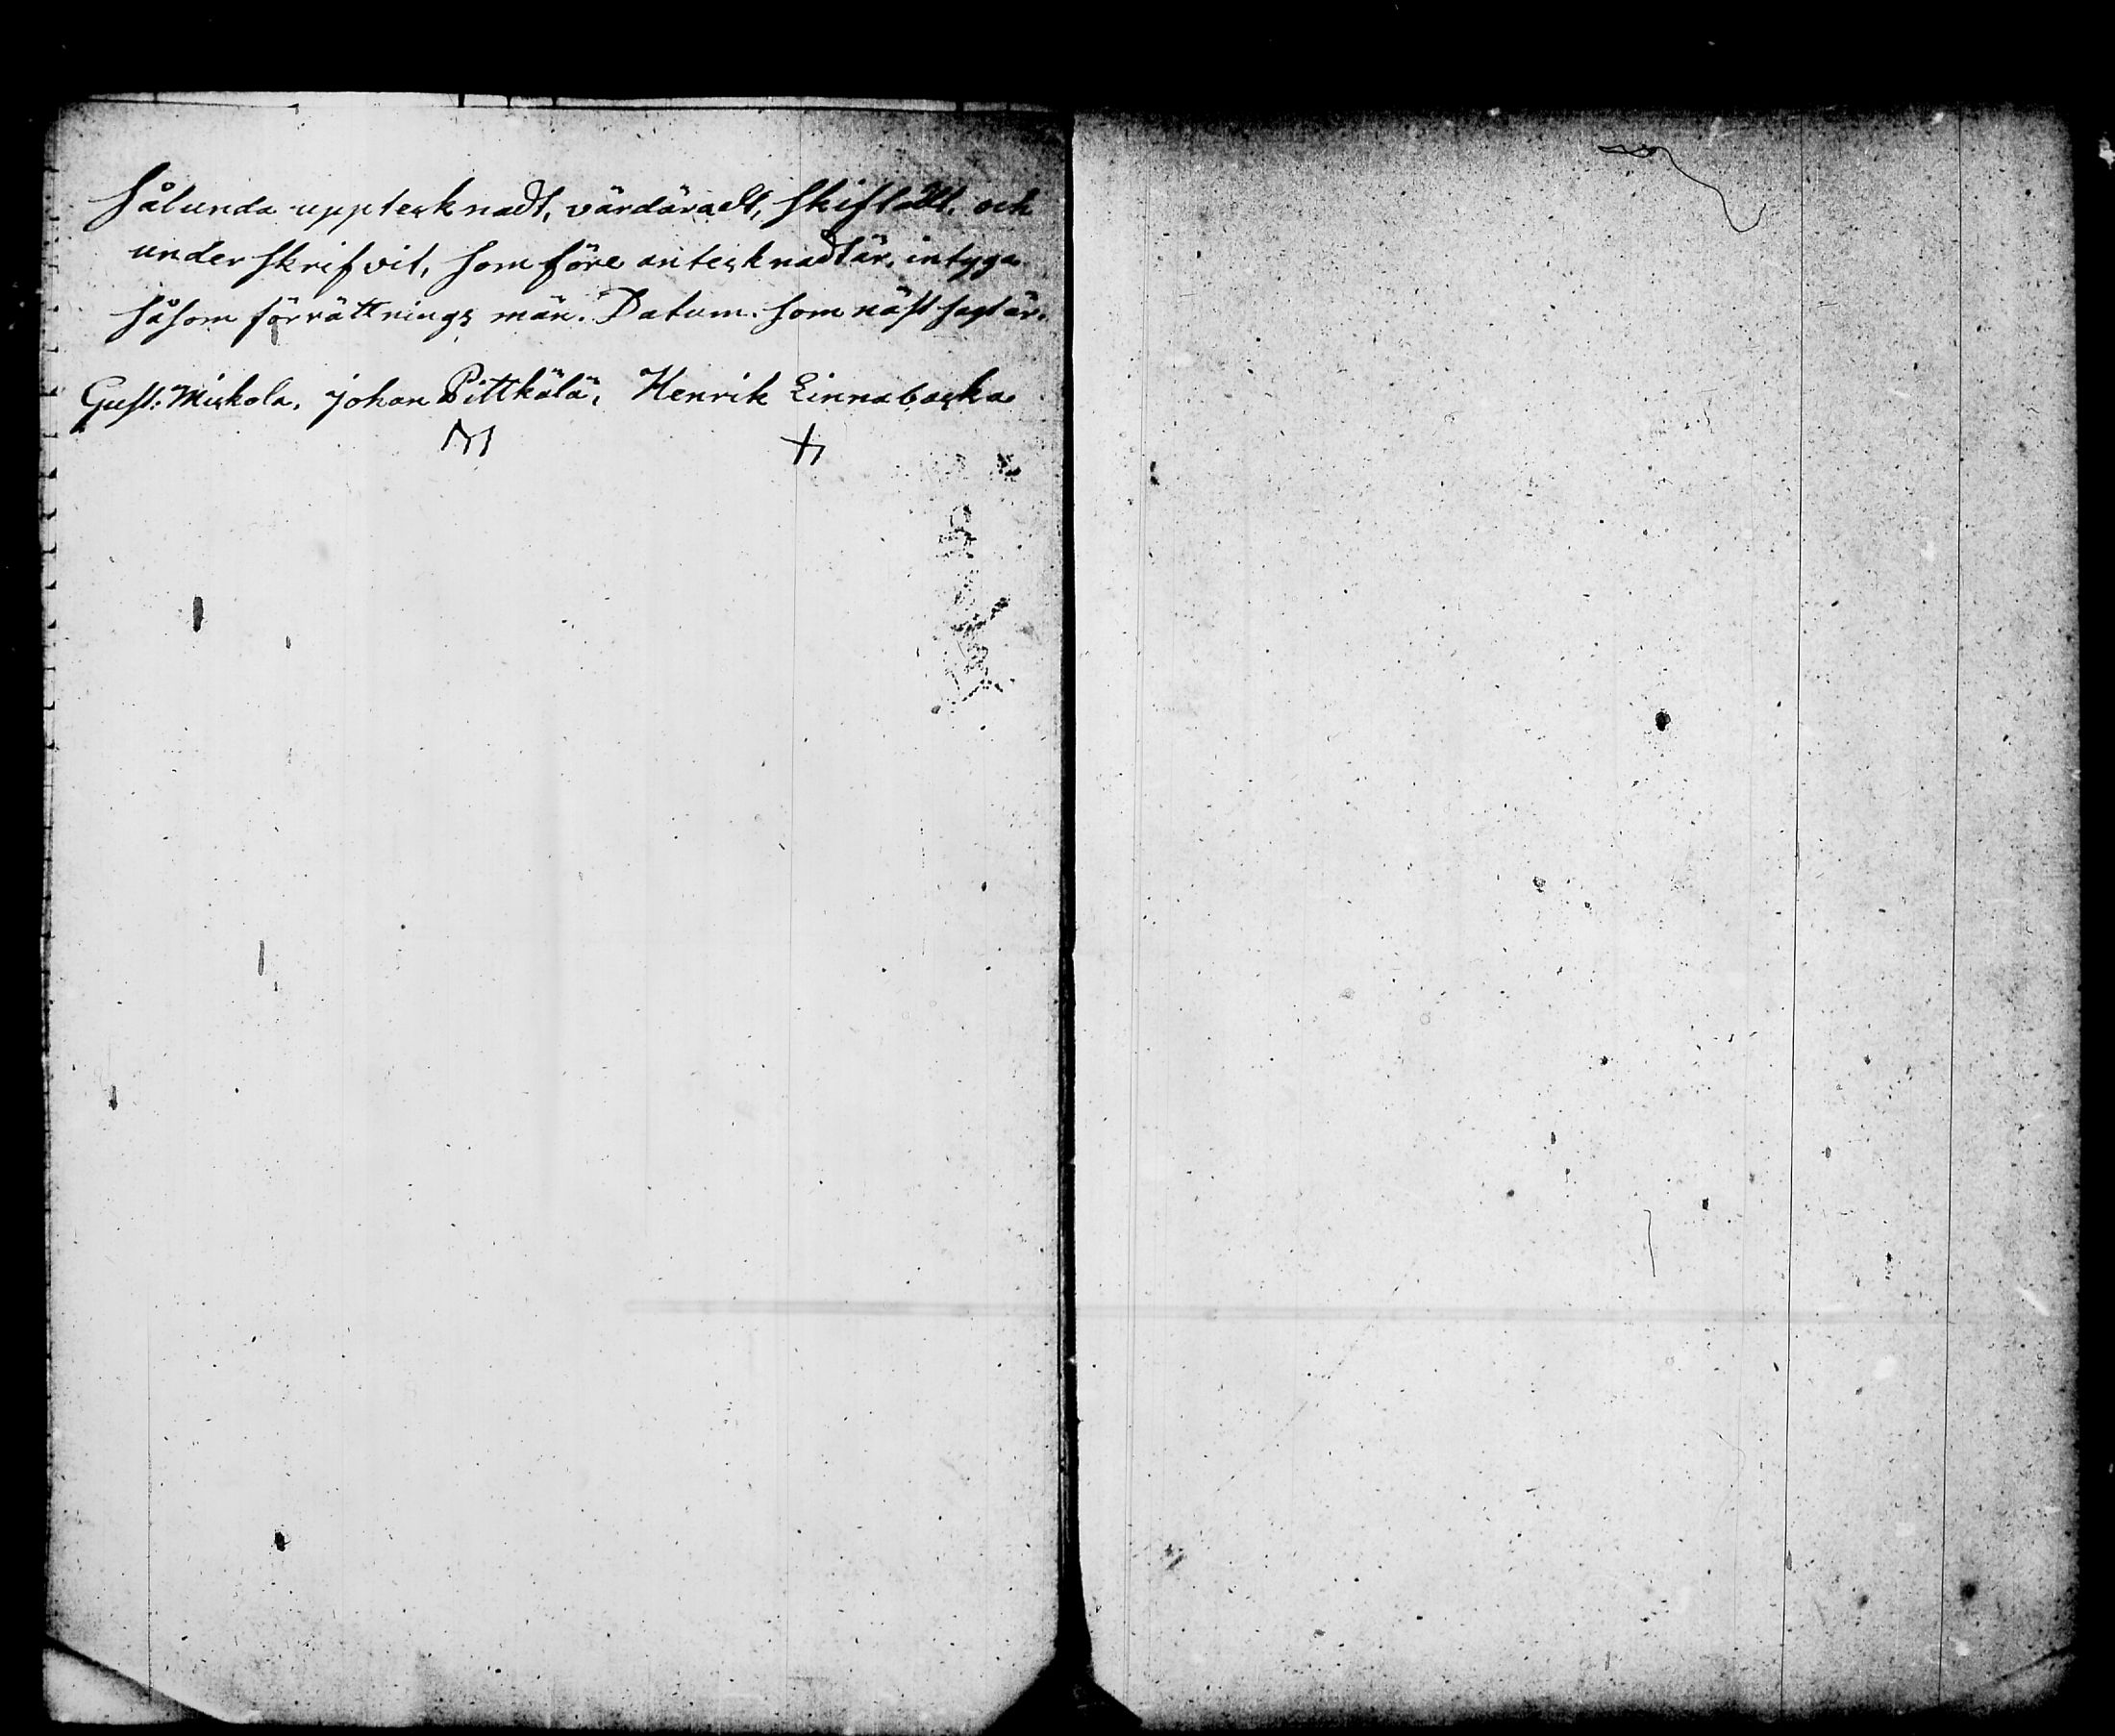 Sålunda upptesknadt, värdäradt, Skiftadt, och
underskrifvit, som före antesknadt är, intyga
såsom förrättnings män. Datum. som näst sagt är.
Gust: Miskola, Johan Pittkälä, Henrik Linnabaska